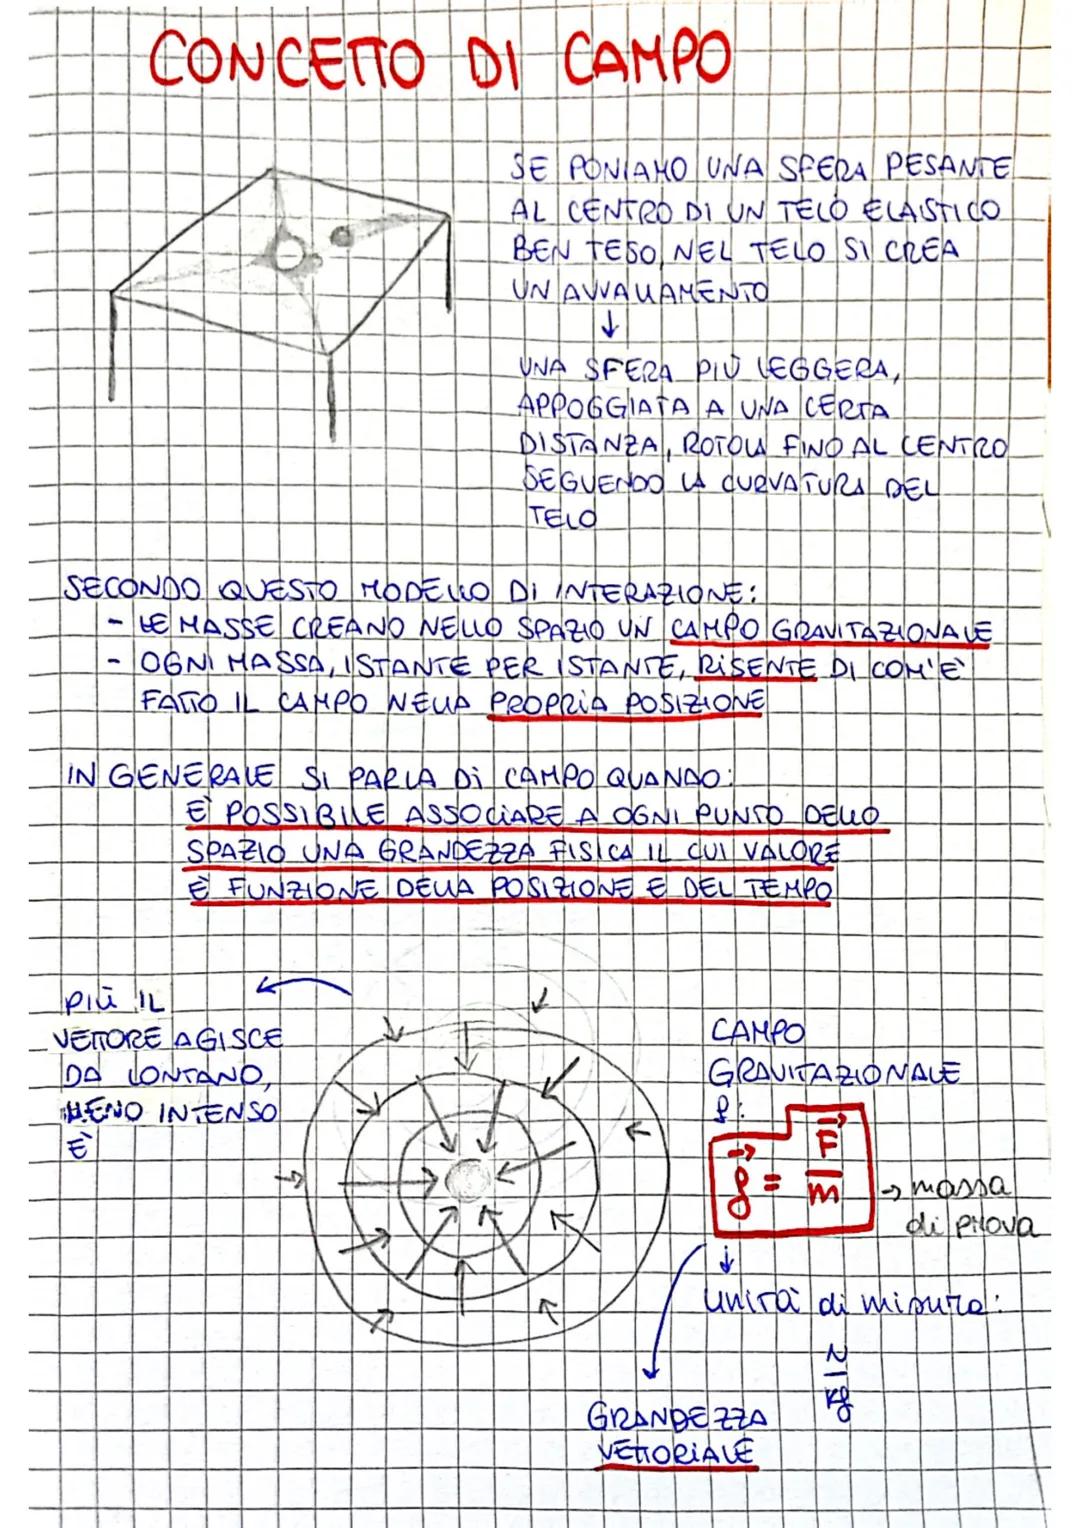 CONCETTO DI CAMPO
SE PONIAMO UNA SFERA PESANTE
AL CENTRO DI UN TELO ELASTICO
BEN TESO, NEL TELO SI CREA
UN AVVALLAMENTO
↓
UNA SFERA PIÙ LEGGERA,
APPOGGIATA A UNA CERTA
DISTANZA, ROTOLA FINO AL CENTRO
SEGUENDO LA CURVATURA DEL
TELO
SECONDO QUESTO MODELLO DI INTERAZIONE:
- LE MASSE CREANO NELLO SPAZIO UN CAMPO GRAVITAZIONALE
- OGNI MASSA, ISTANTE PER ISTANTE, RISENTE DI COM'È
FATTO IL CAMPO NELLA PROPRIA POSIZIONE
IN GENERALE SI PARLA DI CAMPO QUANDO:
È POSSIBILE ASSOCIARE A OGNI PUNTO DELLO
SPAZIO UNA GRANDEZZA FISICA IL CUI VALORE
È FUNZIONE DELLA POSIZIONE E DEL TEMPO
PIÙ IL
VETTORE AGISCE
DA LONTANO,
MENO INTENSO
È
CAMPO
GRAVITAZIONALE
g:
g⃗ = F⃗/m → massa
di prova
↓
unità di misura:
N/kg
GRANDEZZA
VETTORIALE